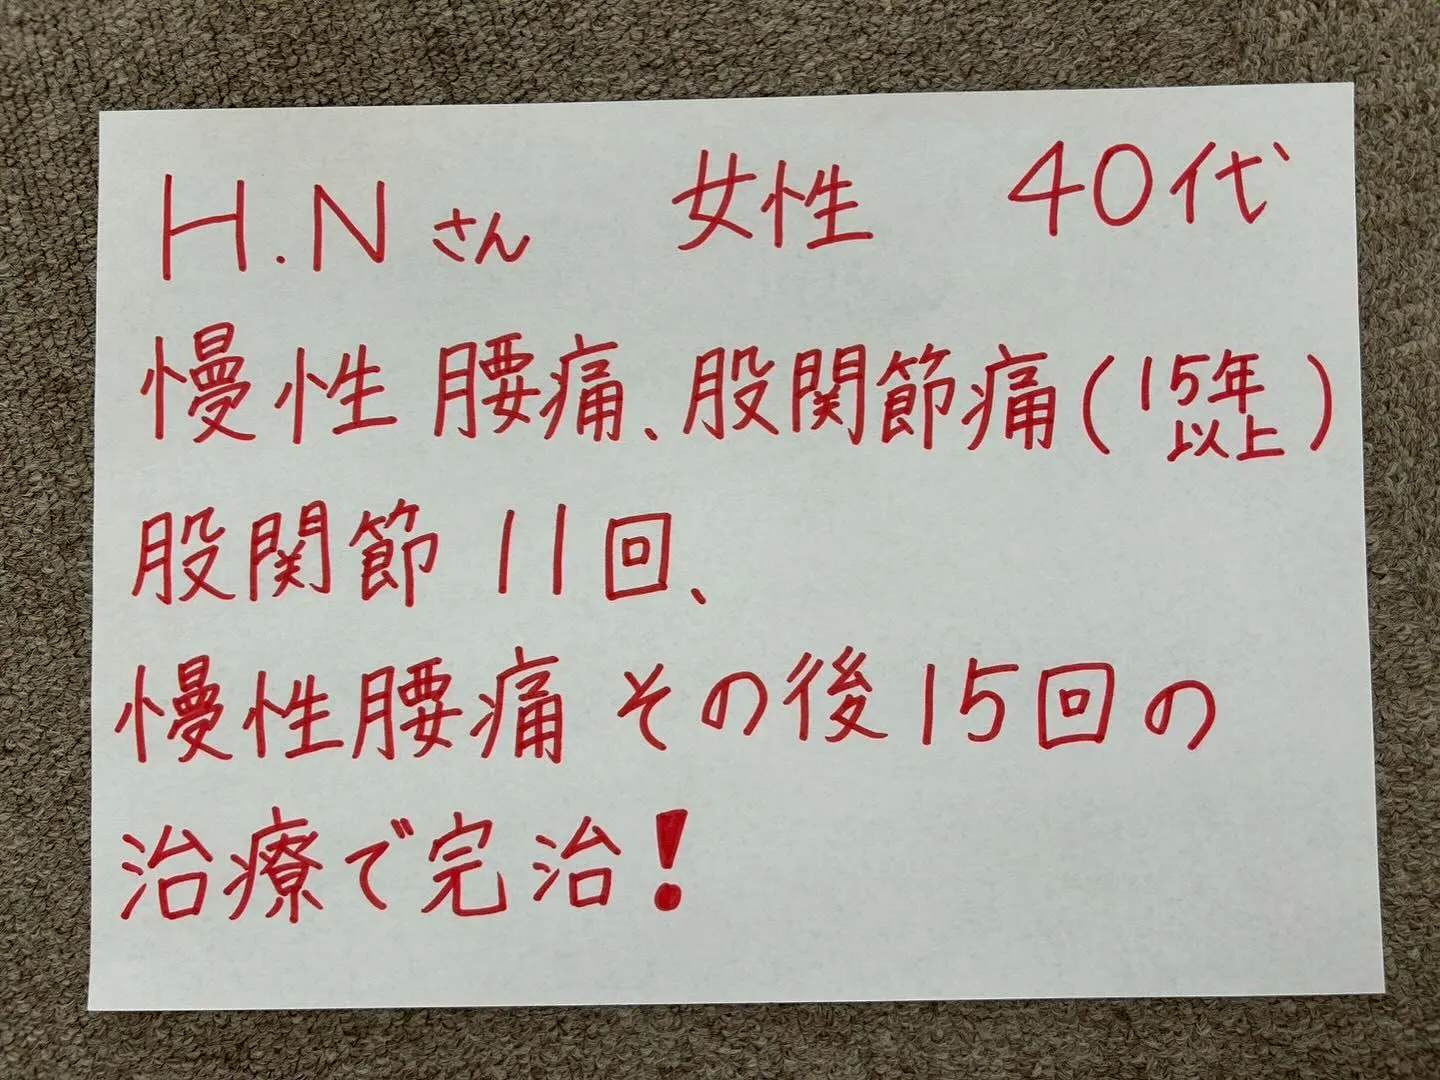 H.Nさん 女性 40代
慢性腰痛、股関節痛(15年以上)
股関節 11回、
慢性腰痛 その後15回の
治療で完治!